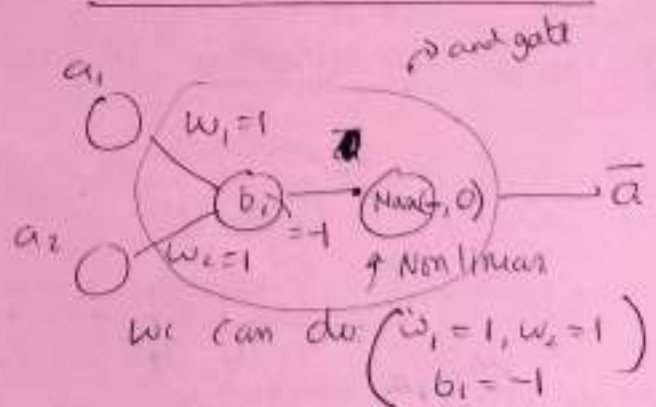 → and gate
a₁
w₁ = 1
b₁ = -1
Max(-, 0)
a̅
a₂
w₂ = 1
↑ Non linear
we can do (w₁ = 1, w₂ = 1
b₁ = -1)